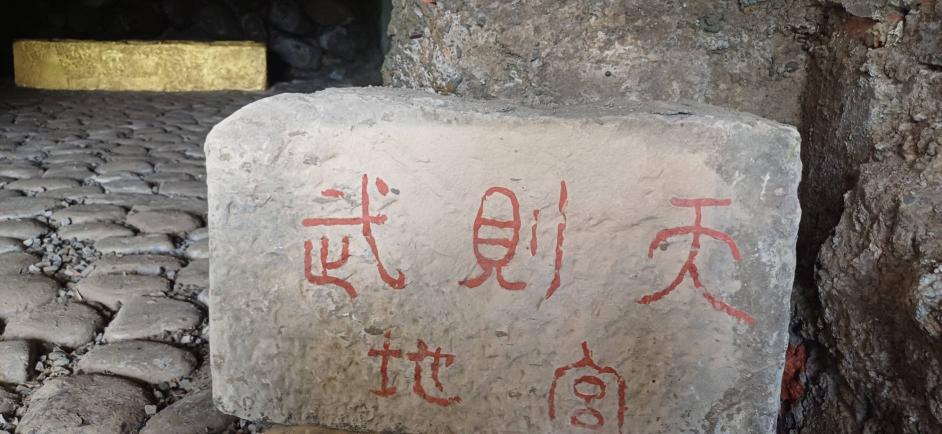 武則天
地宮